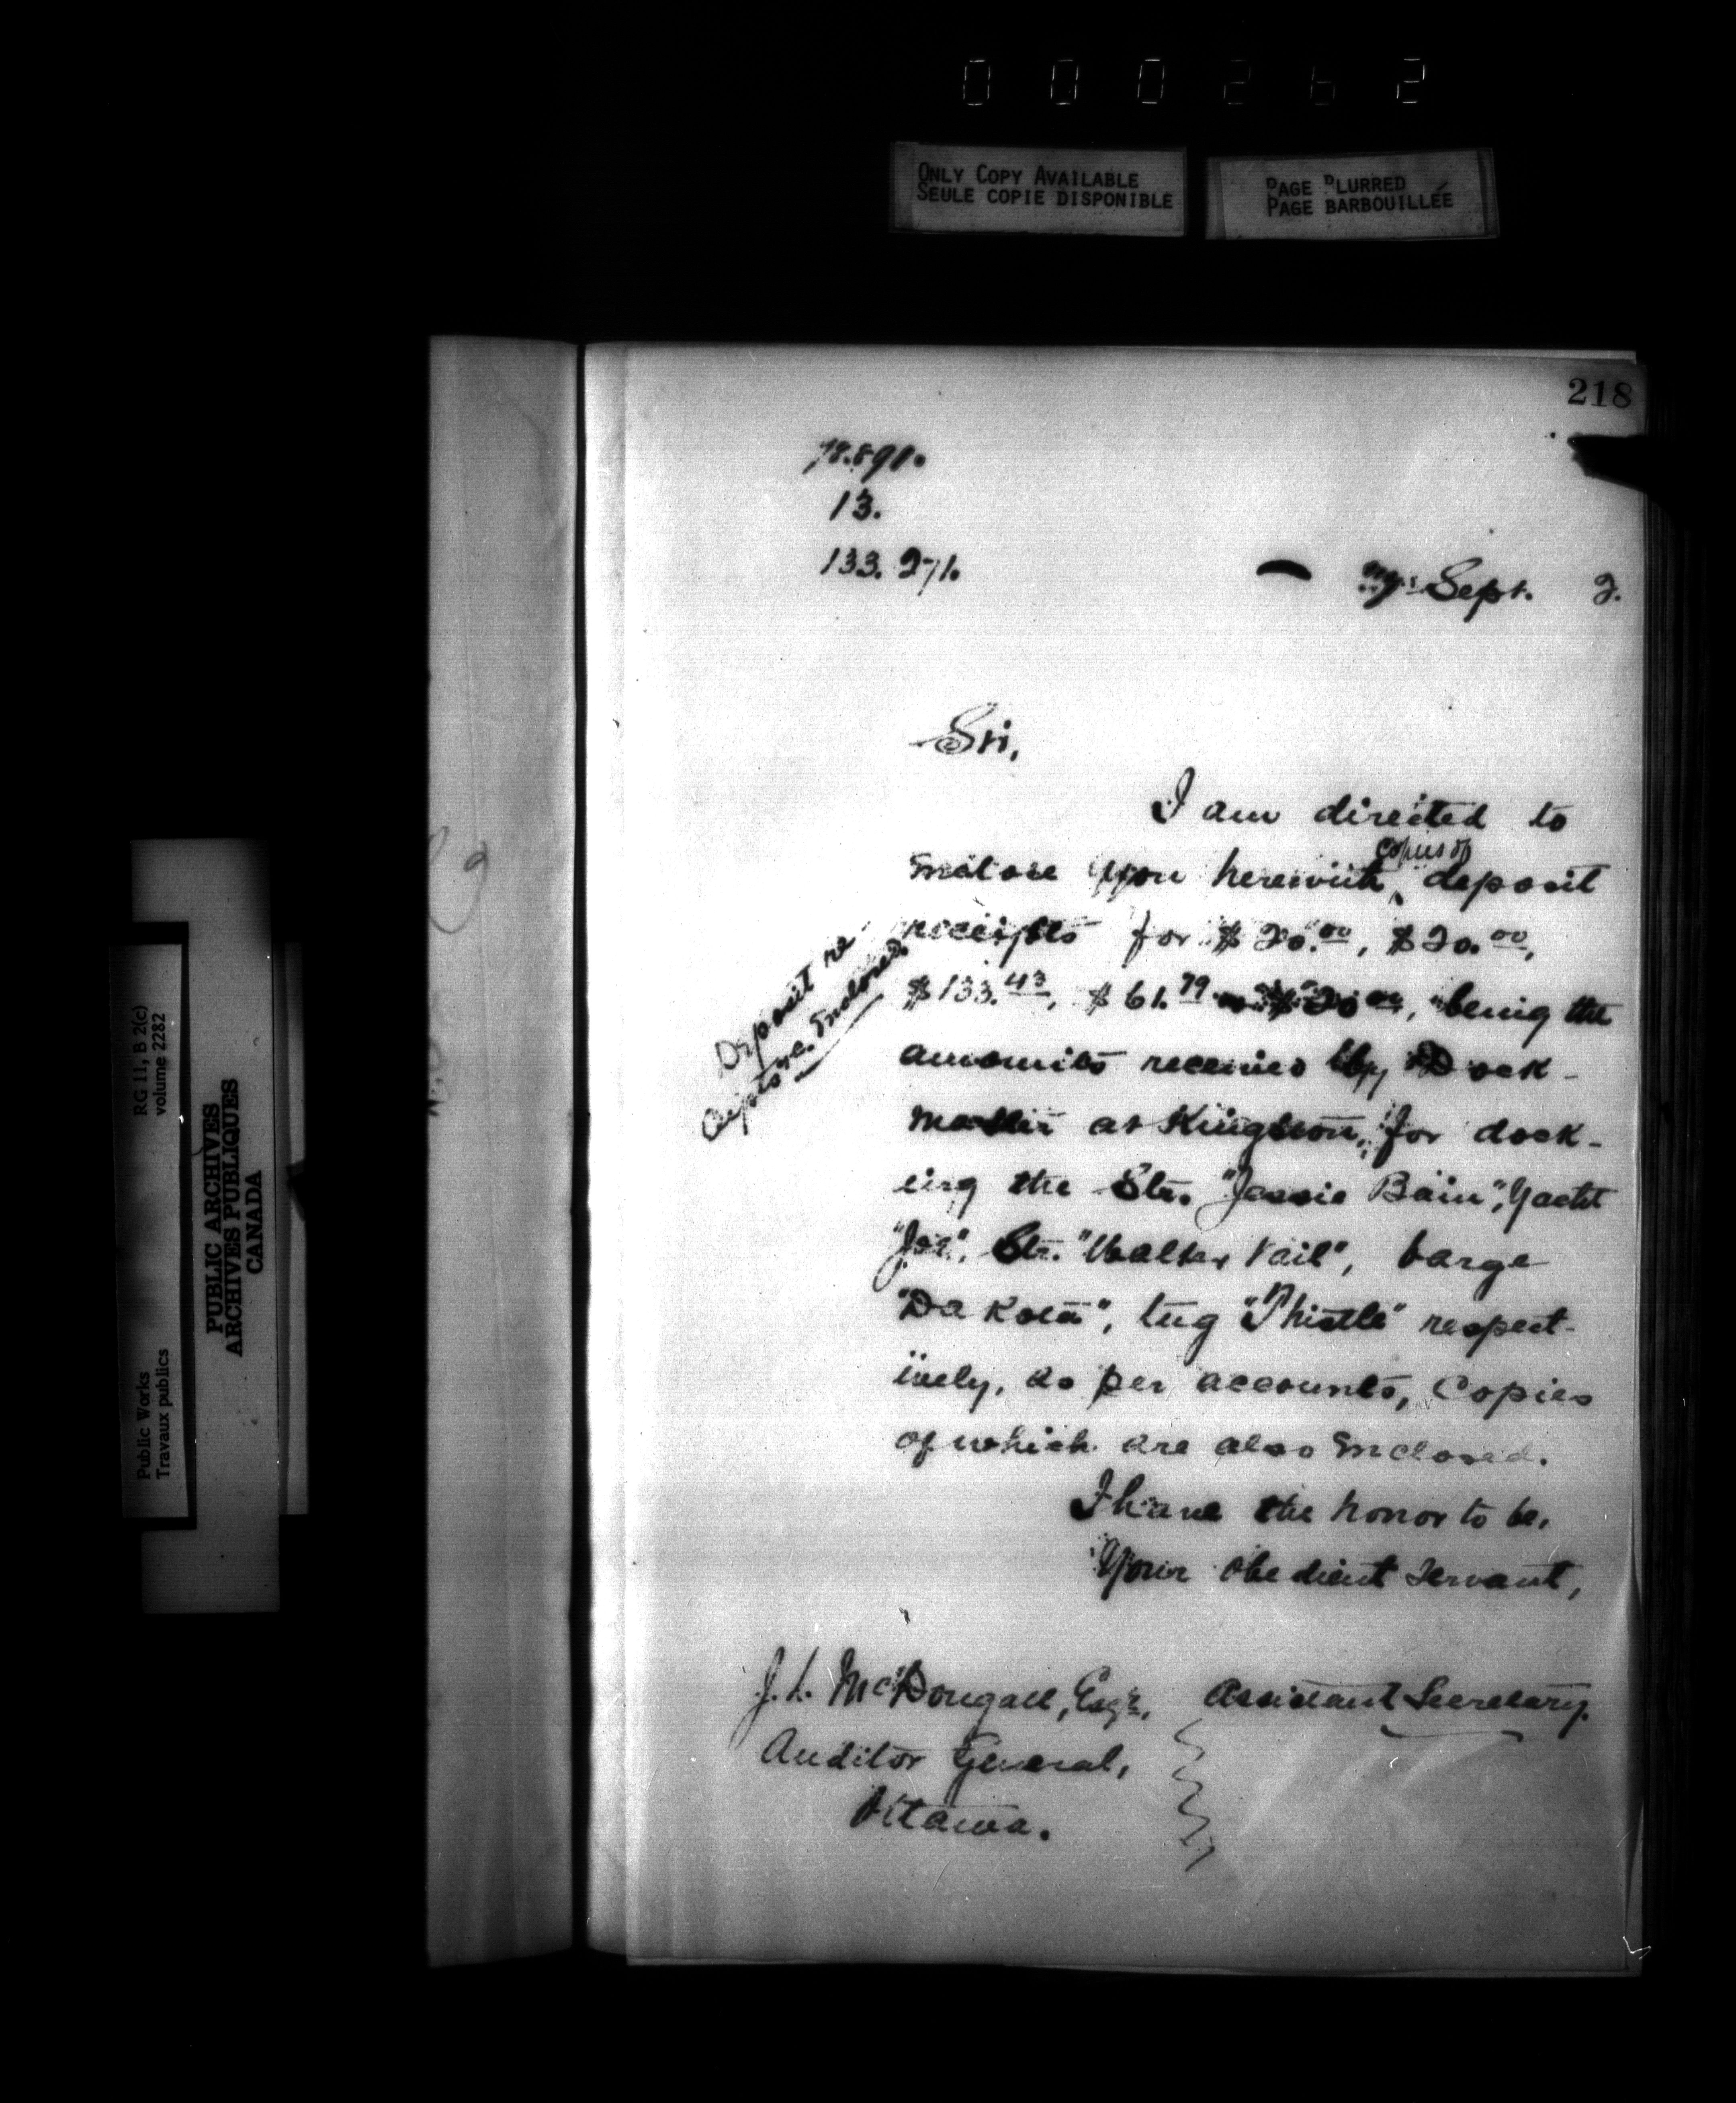 000262
ONLY COPY AVAILABLE
SEULE COPIE DISPONIBLE
PAGE BLURRED
PAGE BARBOUILLÉE
218
78.891.
13.
133.271.
Sept. 2.
Sir,
I am directed to
copies of
enclose you herewith, deposit
receipts for $20.00, $20.00,
$133.43, $61.79 $20.00, being the
amounts received by Dock-
master at Kingston, for dock-
ing the Str. "Jessie Bain", Yacht
"Joe", Str. "Walter Vail", barge
"Dakota", tug "Thistle" respect-
ively, as per accounts, Copies
of which are also Enclosed.
Deposit re-
cepts &c. Enclosed.
I have the honor to be,
Your obedient servant,
J. L. McDougall, Esqr,
Assistant Secretary.
Auditor General,
Ottawa.
Public Works
Travaux publics
RG 11, B 2(c)
volume 2282
PUBLIC ARCHIVES
ARCHIVES PUBLIQUES
CANADA